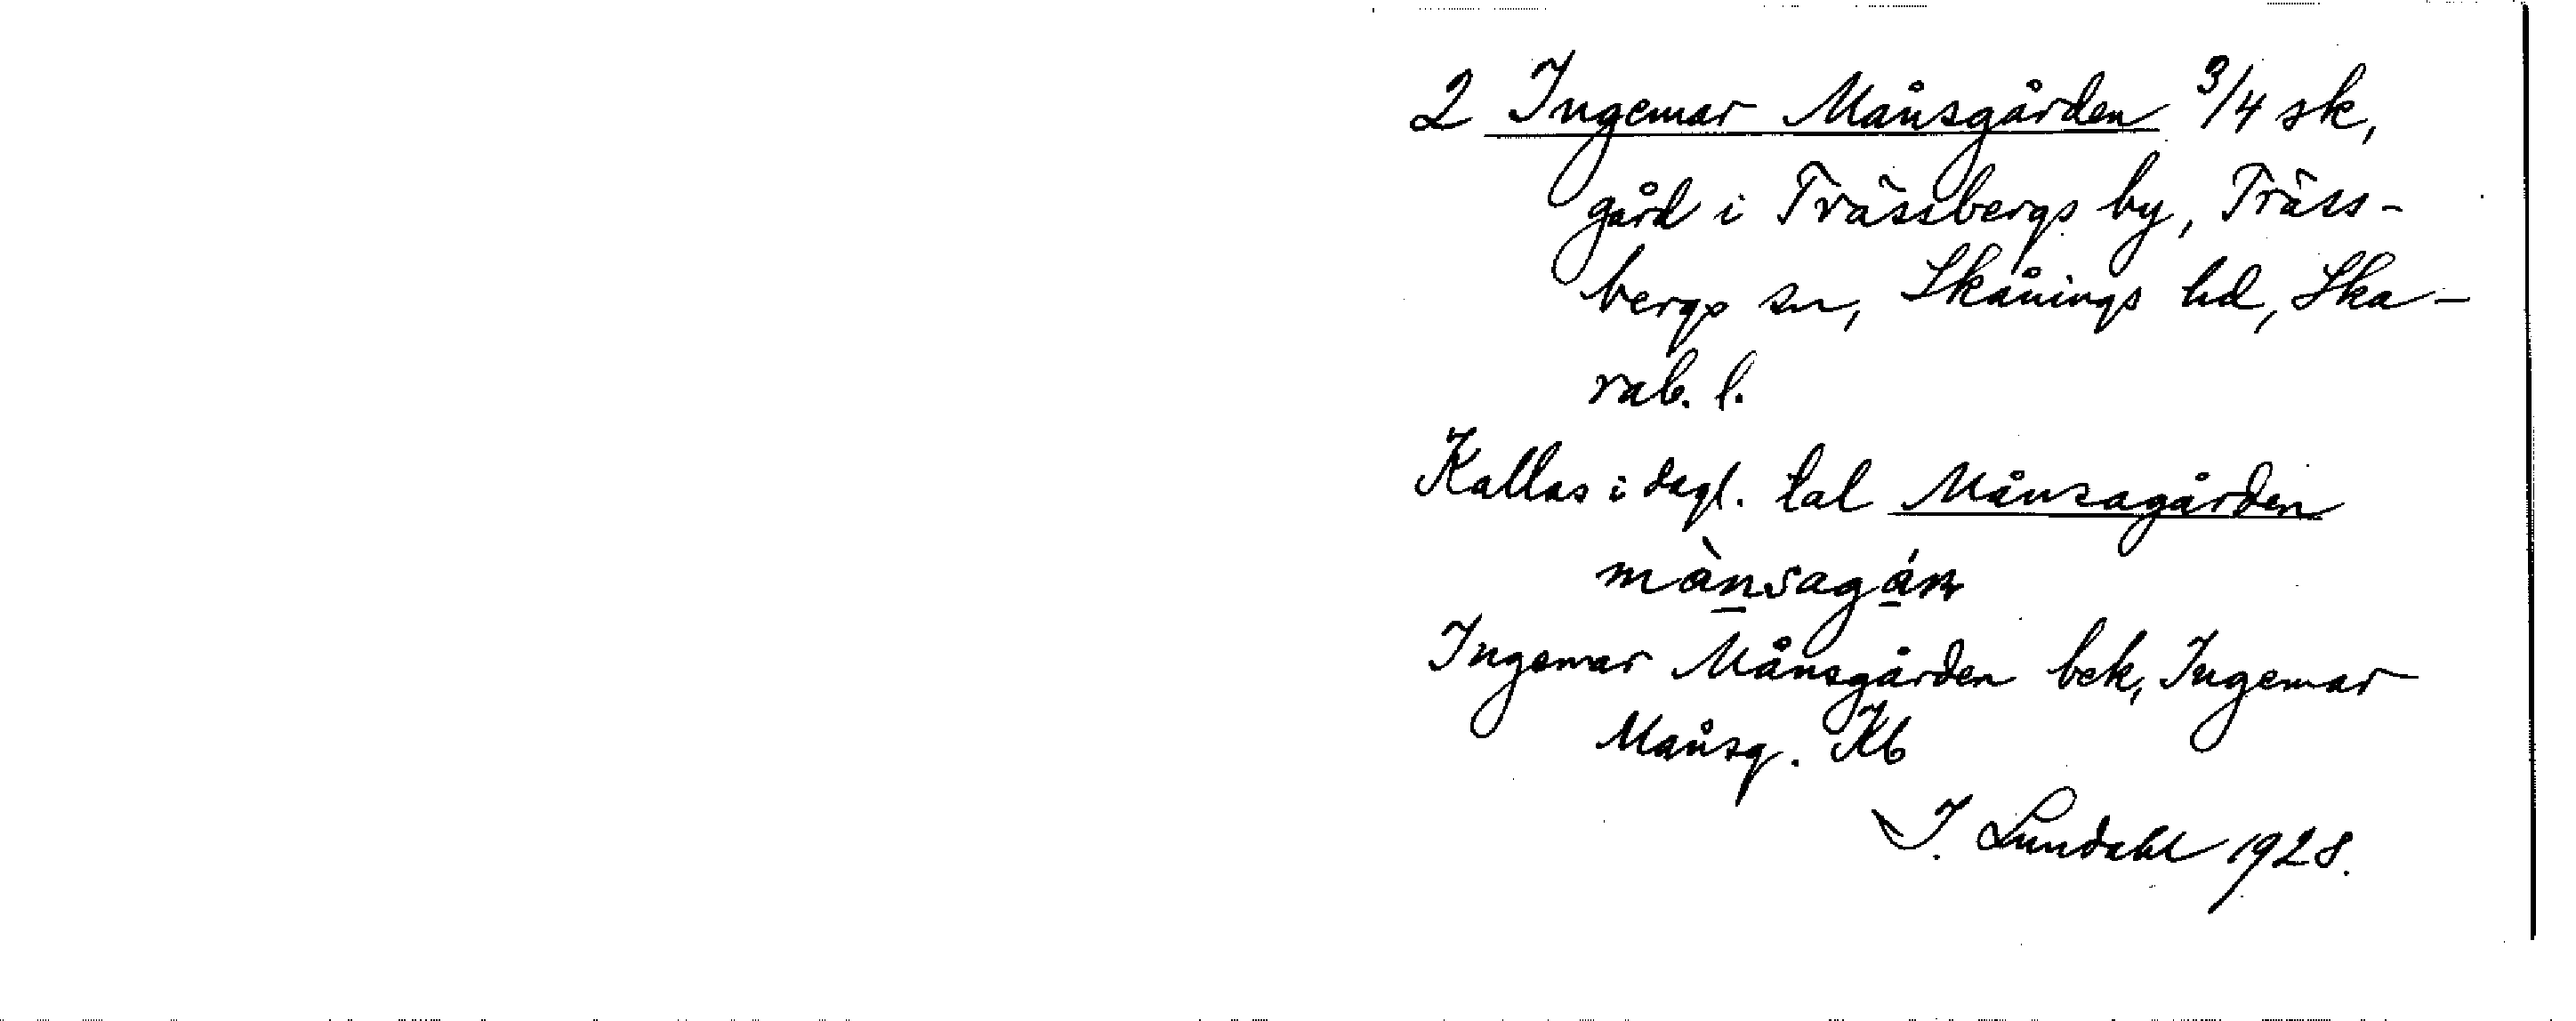 2 Ingemar Månsgården 3/4 sk,
gård i Trässbergs by, Träss-
bergs sn, Skånings hd, Ska-
rab. l.
Kallas i dagl. tal Månsagården
mànsagán
Ingemar Månsgården bek, Ingemar
Månsg. Kb
I. Lundahl 1928.